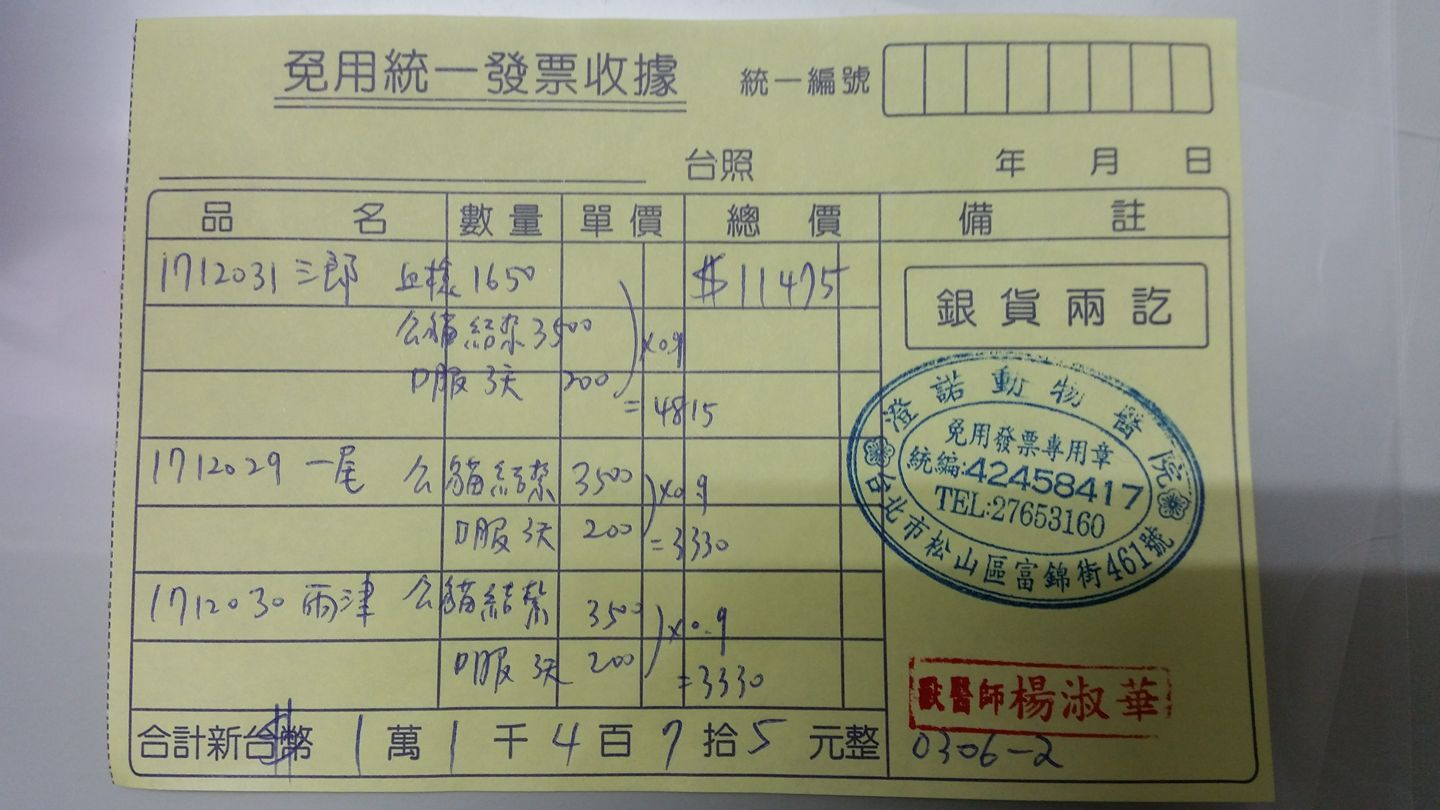 免用統一發票收據
統一編號
台照
年 月 日
品名 數量 單價 總價 備註
1712031 三郎 血樣 1650 $11475
公貓結紮 3500 x0.9
口服 3天 200
=4815
1712029 一尾 公貓結紮 3500 x0.9
口服 3天 200
=3330
1712030 雨津 公貓結紮 3500 x0.9
口服 3天 200
=3330
合計新台幣 $ 1 萬 1 千 4 百 7 拾 5 元整
銀貨兩訖
澄諾動物醫院
免用發票專用章
統編:42458417
TEL:27653160
台北市松山區富錦街461號
獸醫師楊淑華
0306-2